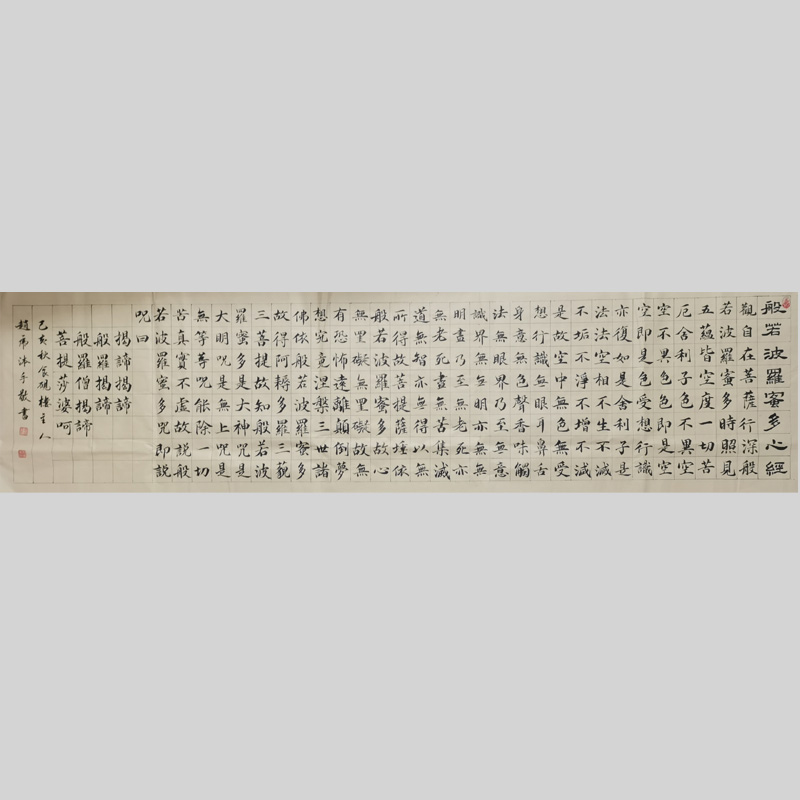 般若波羅蜜多心經
觀自在菩薩行深般
若波羅蜜多時照見
五蘊皆空度一切苦
厄舍利子色不異空
空不異色色即是空
空即是色受想行識
亦復如是舍利子是
法法空相不生不滅
不垢不淨不增不減
是故空中無色無受
想行識無眼耳鼻舌
身意無色聲香味觸
法無眼界乃至無意
識界無無明亦無無
明盡乃至無老死亦
無老死盡無苦集滅
道無智亦無得以無
所得故菩提薩埵依
般若波羅蜜多故心
無罣礙無罣礙故無
有恐怖遠離顛倒夢
想究竟涅槃三世諸
佛依般若波羅蜜多
故得阿耨多羅三藐
三菩提故知般若波
羅蜜多是大神咒是
大明咒是無上咒是
無等等咒能除一切
苦真實不虛故說般
若波羅蜜多咒即說
咒曰
揭諦揭諦
般羅揭諦
般羅僧揭諦
菩提莎婆呵
己亥秋食硯樓主人
趙沐手敬書